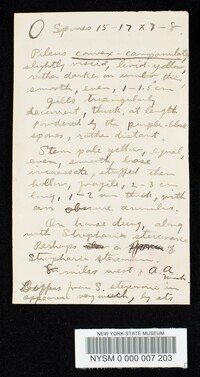 O Spores 15-17 x 7-8
Pileus convex-campanulate
slightly viscid, livid yellow
rather darker on umbo, thin
smooth, even, 1-1.5 cm
gills triangularly
decurrent, thick, at length
powdered by the purple-black
spores, rather distant.
Stem pale yellow, equal,
even, smooth, base
incrassate, stuffed then
hollow, fragile, 2-3 cm
long, 1-2 mm thick, with
an obscure annulus.
On horse dung, along
with Stropharia stercoraria
Perhaps a
Stropharia
miles west, A. A.
Mich.
Differs from S. stercoraria in
appearance very much, by its
NEW YORK STATE MUSEUM
NYSM 0 000 007 203